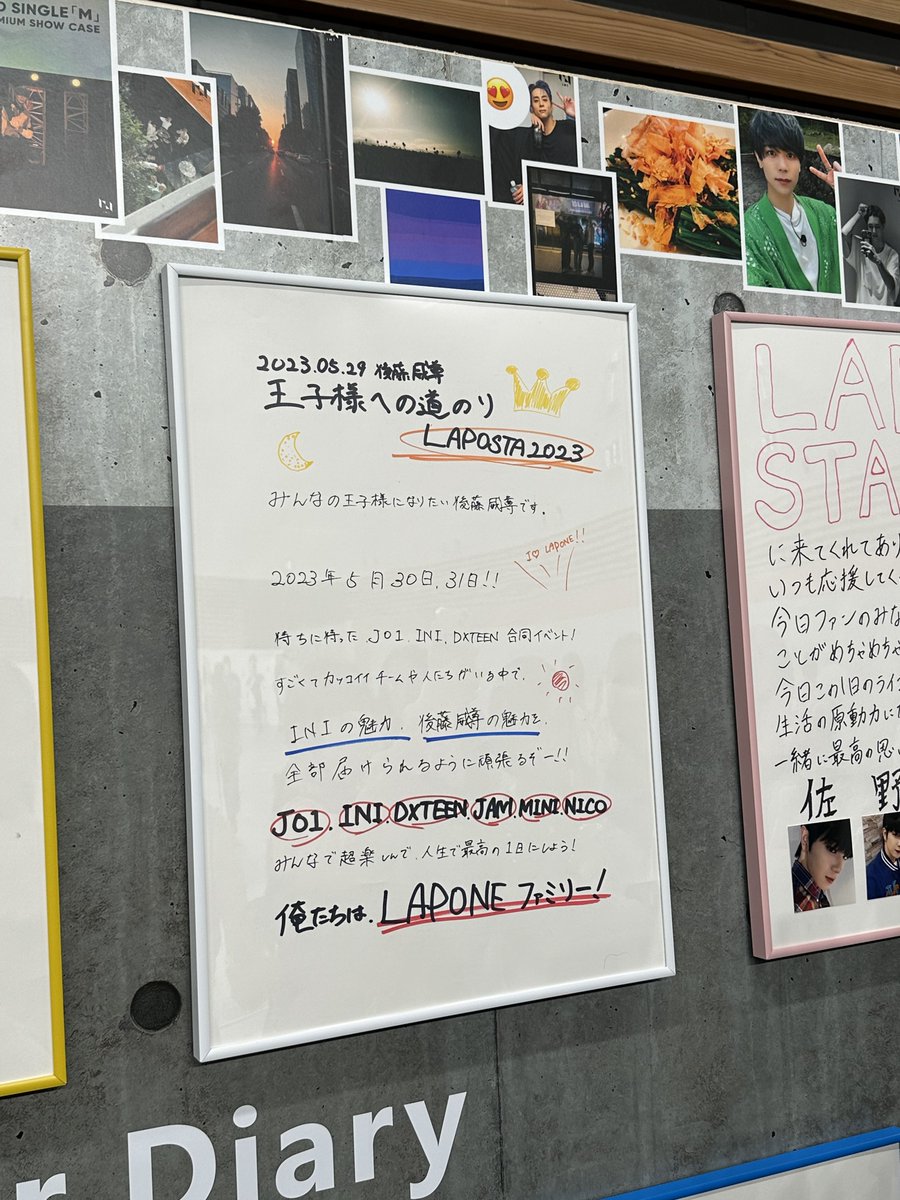 SINGLE「M」
MIUM SHOW CASE
2023.05.29 後藤威尊
王子様への道のり
LAPOSTA2023
みんなの王子様になりたい後藤威尊です。
I♡ LAPONE!!
2023年5月30日、31日!!
待ちに待った、JO1、INI、DXTEEN 合同イベント!
すごくてカッコイイチームや人たちがいる中で、
INIの魅力、後藤威尊の魅力を、
全部届けられるように頑張るぞー!!
JO1、INI、DXTEEN、JAM、MINI、NICO
みんなで超楽しんで、人生で最高の1日にしよう!
俺たちは、LAPONEファミリー!
LAP
STA
に来てくれてあり
いつも応援してく
今日ファンのみな
ことがめちゃめちゃ
今日この1日のライ
生活の原動力に
一緒に最高の思い
佐 野
r Diary